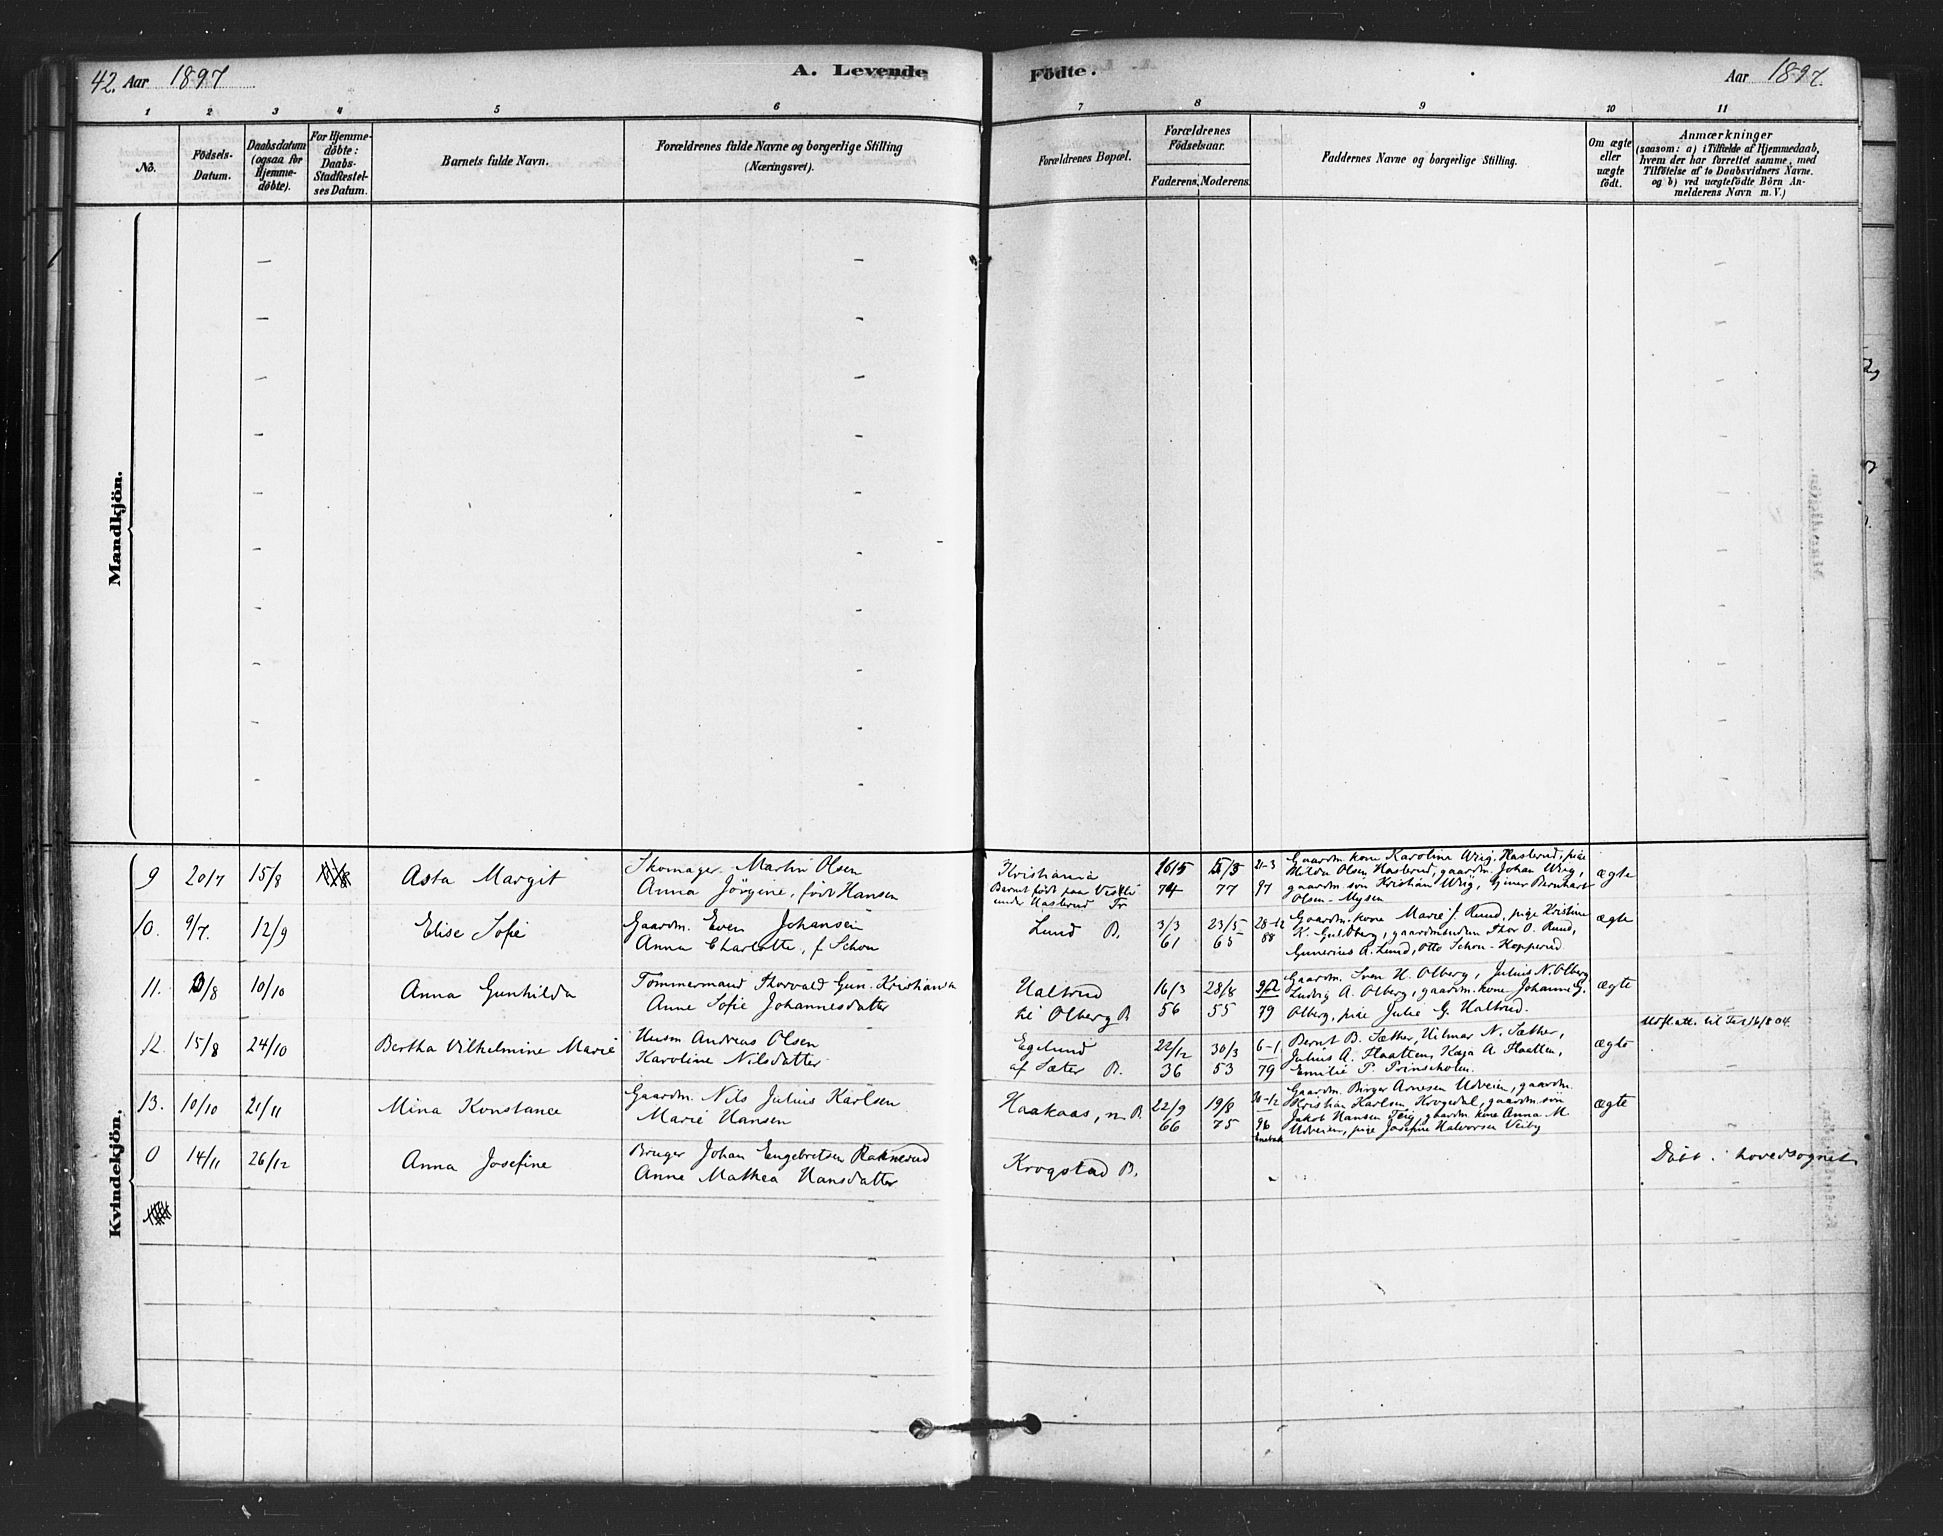 42. Aar 1897
A. Levende Födte.
Aar 1897.
1 2 3 4 5 6 7 8 9 10 11
No.
Födsels-
Datum.
Daabsdatum
(ogsaa for
Hjemme-
döbte).
For Hjemme-
döbte:
Daabs-
Stadfæstel-
ses Datum.
Barnets fulde Navn.
Forældrenes fulde Navne og borgerlige Stilling
(Næringsvei).
Forældrenes Bopæl.
Forældrenes
Födselsaar.
Faderens. Moderens.
Faddernes Navne og borgerlige Stilling.
Om ægte
eller
uægte
födt.
Anmærkninger
(saasom: a) i Tilfælde af Hjemmedaab,
hvem der har forrettet samme, med
Tilföielse af to Daabsvidners Navne.
og b) ved uægtefödte Börn An-
melderens Navn m. V.)
Mandkjön.
Kvindekjön.
9 20/7 15/8
Asta Margit
Skomager Martin Olsen
Anna Jörgine, född Hansen
Kristiania
Barnet född paa Vestli
under Hasterud Tr
16/5 74
5/3 77
21-3 97
Gaardm. kone Karolina Wiig, Hasterud, pige
Milda Olsen Hasterud, gaardm. Johan Wiig,
gaardm. sön Kristian Wiig, Einer Bernhart
Olsen - Mysen
ægte
10. 9/7. 12/9
Elise Sofie
Gaardm. Even Johansen
Anna Charlotte, f Schou
Lund B.
3/3 61
23/5 65
28-12 88
Gaardm. kone Marie J. Rud, pige Kristine
K. Guldberg, gaardmanden Thor O. Rud,
Gunerius A. Lund, Otto Schou - Kopperud
ægte
11. 3/8 10/10
Anna Gunhilda
Tömmermand Thorvald Gun. Kristiansen
Anne Sofie Johannesdatter
Haltrud
til Olberg B
16/3 56
28/8 55
79
Gaardm. Sven H. Olberg, Julius N. Olberg
Ludvig A. Olberg, gaardm. kone Johanne G.
Olberg, pige Julie G. Haltrud.
ægte
12. 15/8 24/10
Bertha Vilhelmine Marie
Husm Andreas Olsen
Karoline Nilsdatter
Egelund
f Sæter B.
22/12 36
30/3 53
6-1 79
Bernt B. Sæther, Hilmar N. Sæther,
Julius A. Haatten, Kaja A. Haatten,
Emilie P. Prinscholen.
ægte
13. 10/10 21/11
Mina Konstance
Gaardm. Nils Julius Karlsen
Marie Hansen
Haakaas, n. B
22/9 66
19/8 75
96
Gaardm. Birger Arnesen Udveien, gaardm.
Kristian Karlsen Krogedal, gaardm. sön
Jakob Hansen Teig, gaardm. kone Anna M
Udveien, pige Josefine Halvorsen Veiby
ægte
0 14/11 26/12
Anna Josefine
Bruger Johan Engebretsen Raknerud
Anne Mathea Hansdatter
Krogstad B.
Döbt i hovedsognet